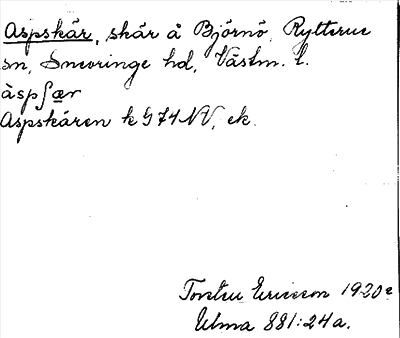 Aspskär, skär å Björnö, Rytterne
sn, Snevringe hd, Västm. l.
àspʃær
Aspskären k G 74 NV, ek.
Torsten Ericsson 1920
Ulma 881:24a.